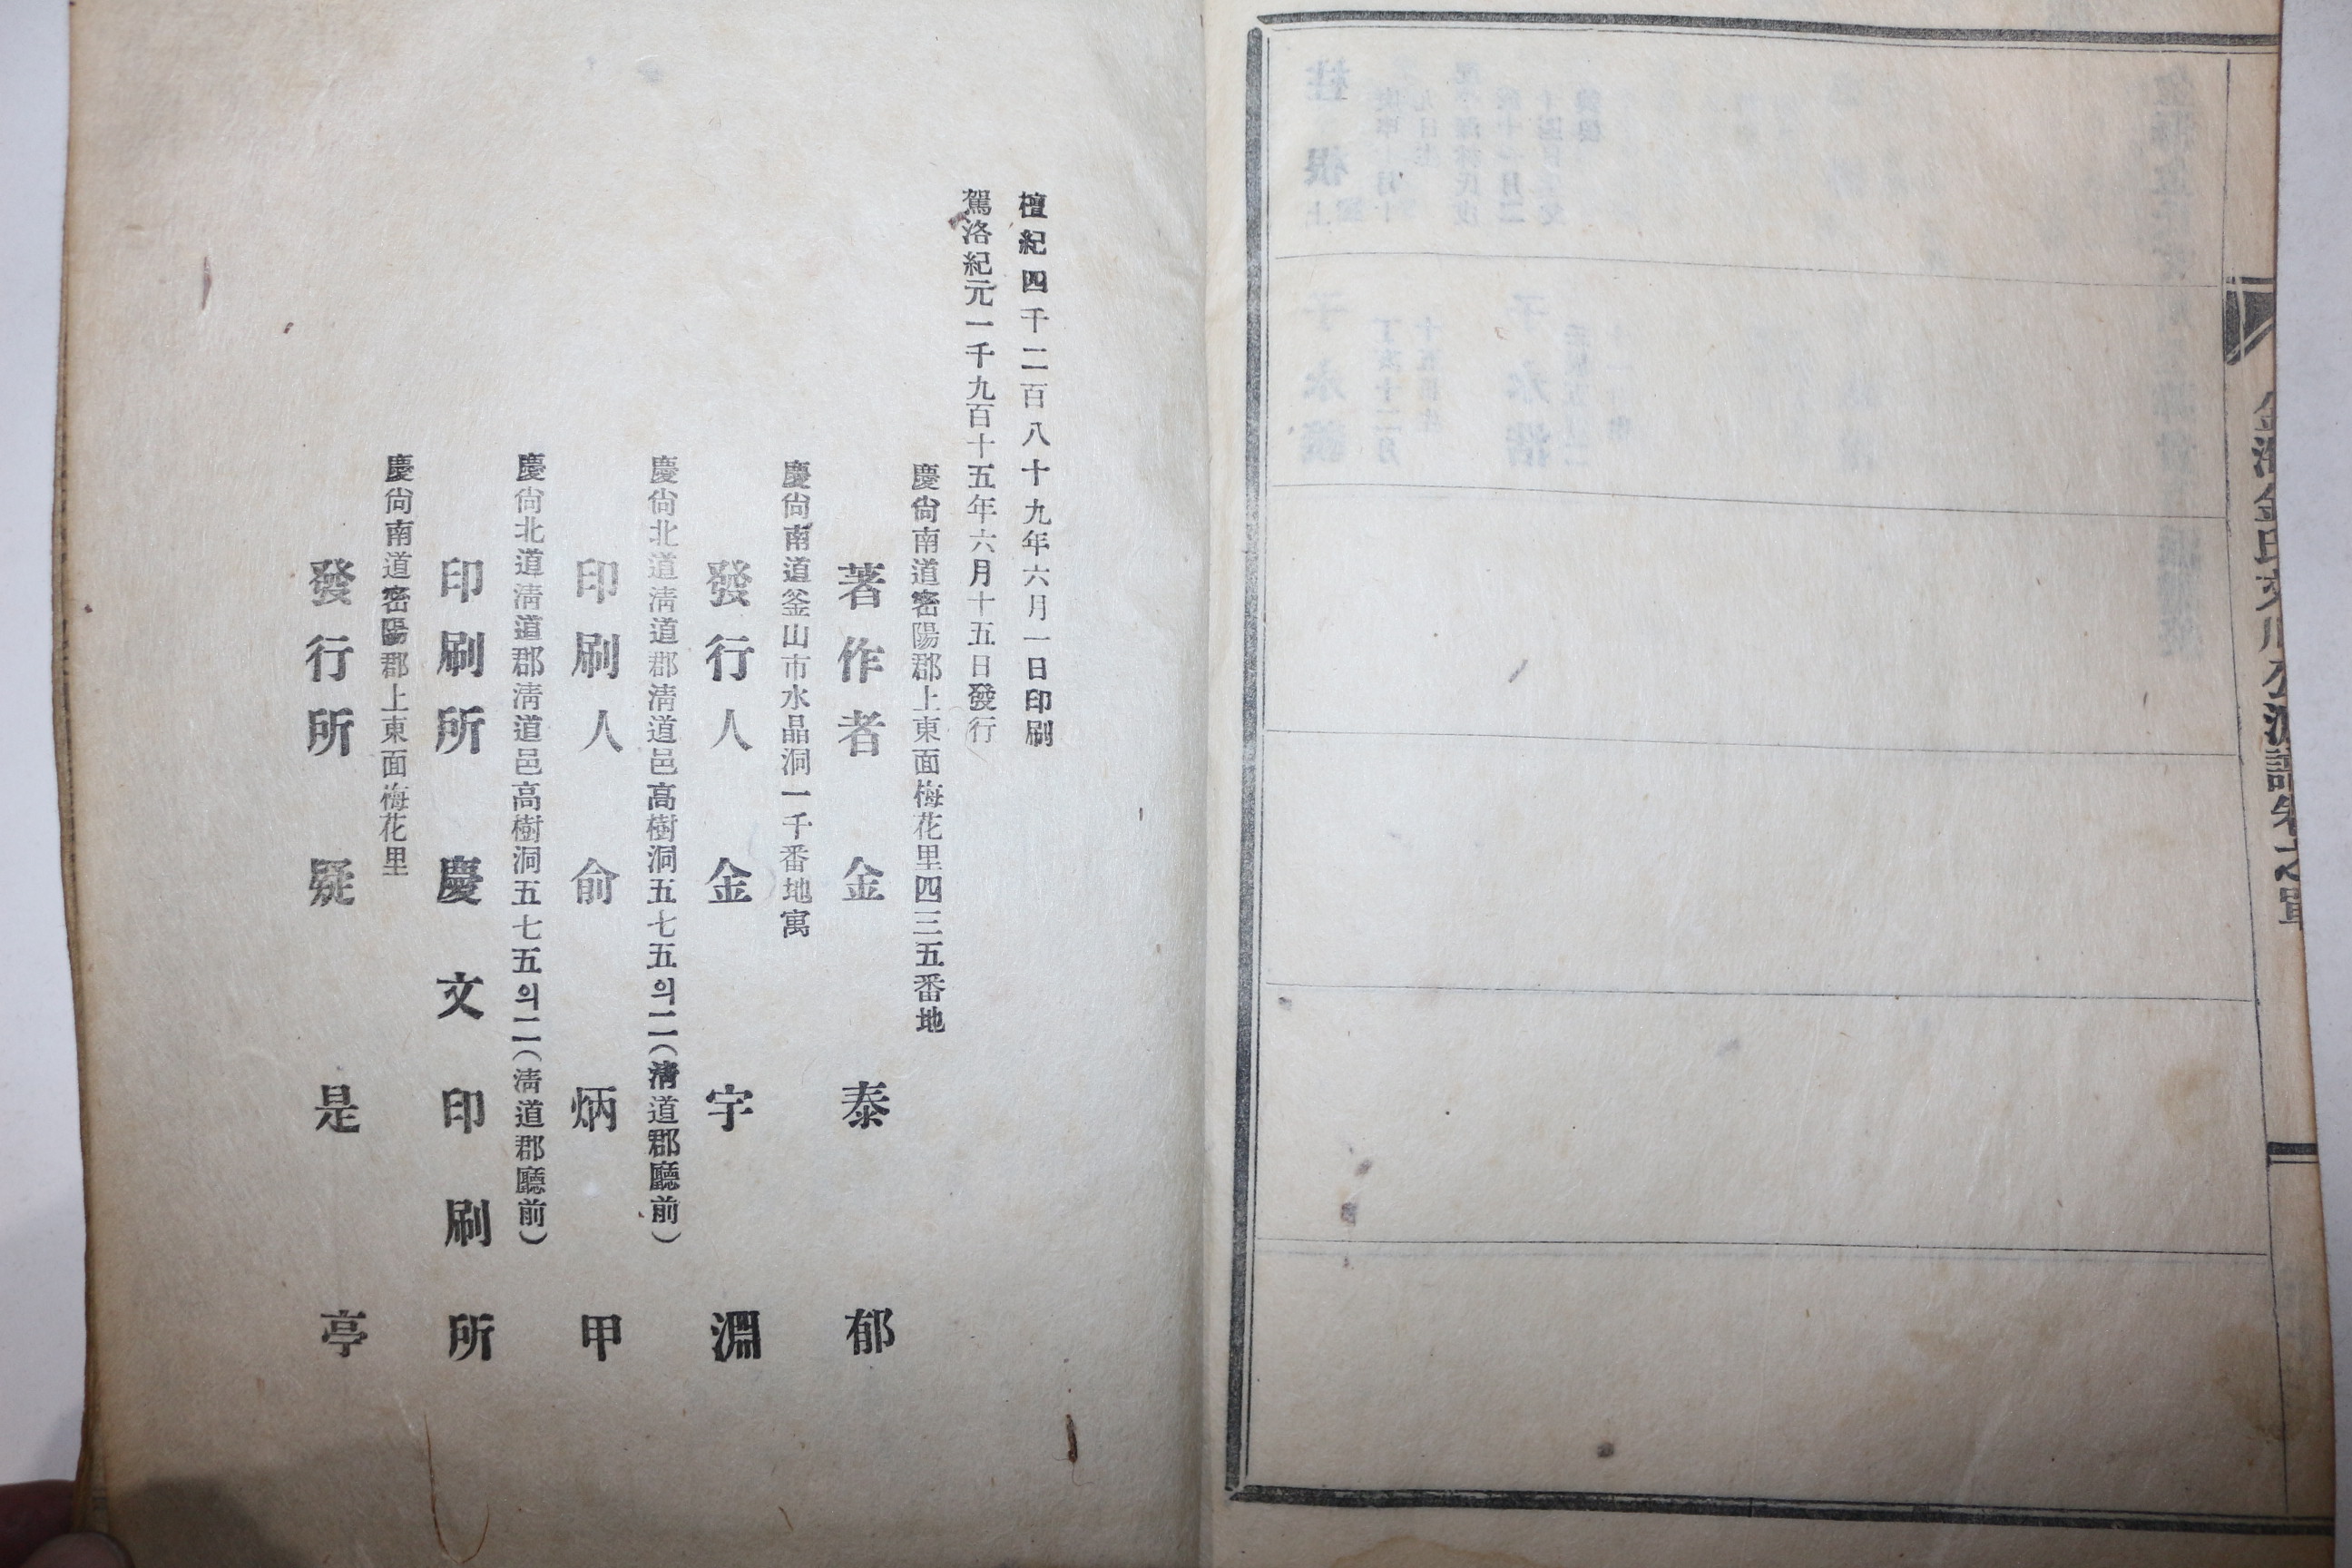 金海金氏
派譜卷之單
檀紀四千二百八十九年六月一日印刷
駕洛紀元一千九百十五年六月十五日發行
慶尙南道密陽郡上東面梅花里四三五番地
著作者 金泰郁
慶尙南道釜山市水晶洞一千番地寓
發行人 金宇淵
慶尙北道淸道郡淸道邑高樹洞五七五의二(淸道郡廳前)
印刷人 俞炳甲
慶尙北道淸道郡淸道邑高樹洞五七五의二(淸道郡廳前)
印刷所 慶文印刷所
慶尙南道密陽郡上東面梅花里
發行所 疑是亭